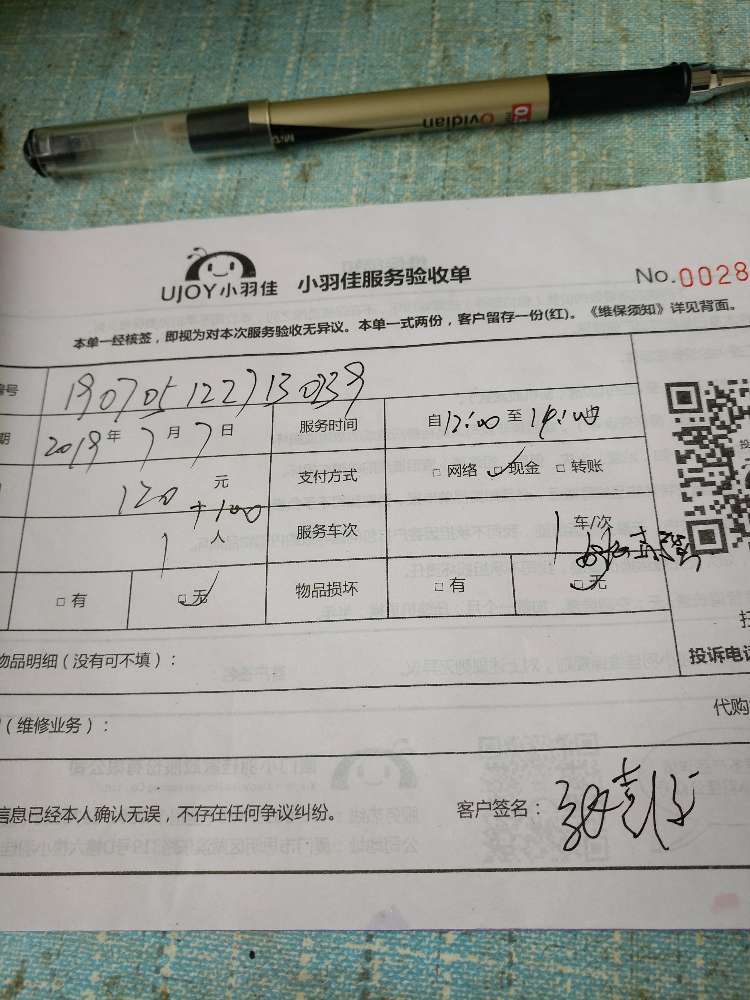 Ovidian
UJOY小羽佳 小羽佳服务验收单 No.0028
本单一经核签，即视为对本次服务验收无异议。本单一式两份，客户留存一份(红)。《维保须知》详见背面。
编号 1907051227130339
期 2019年7月7日 服务时间 自12:00至14:00止
120元 +100 支付方式 □网络 □现金 □转账
1人 服务车次 1车/次
□有 □无 物品损坏 □有 □无
物品明细（没有可不填）：
投诉电话
（维修业务）：
代购
信息已经本人确认无误，不存在任何争议纠纷。 客户签名：